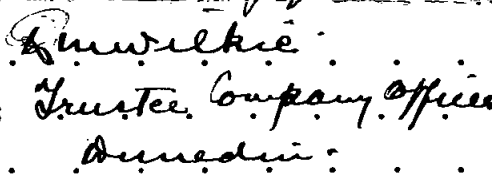 Dmwilkie
Trustee Company Officer
Dunedin.